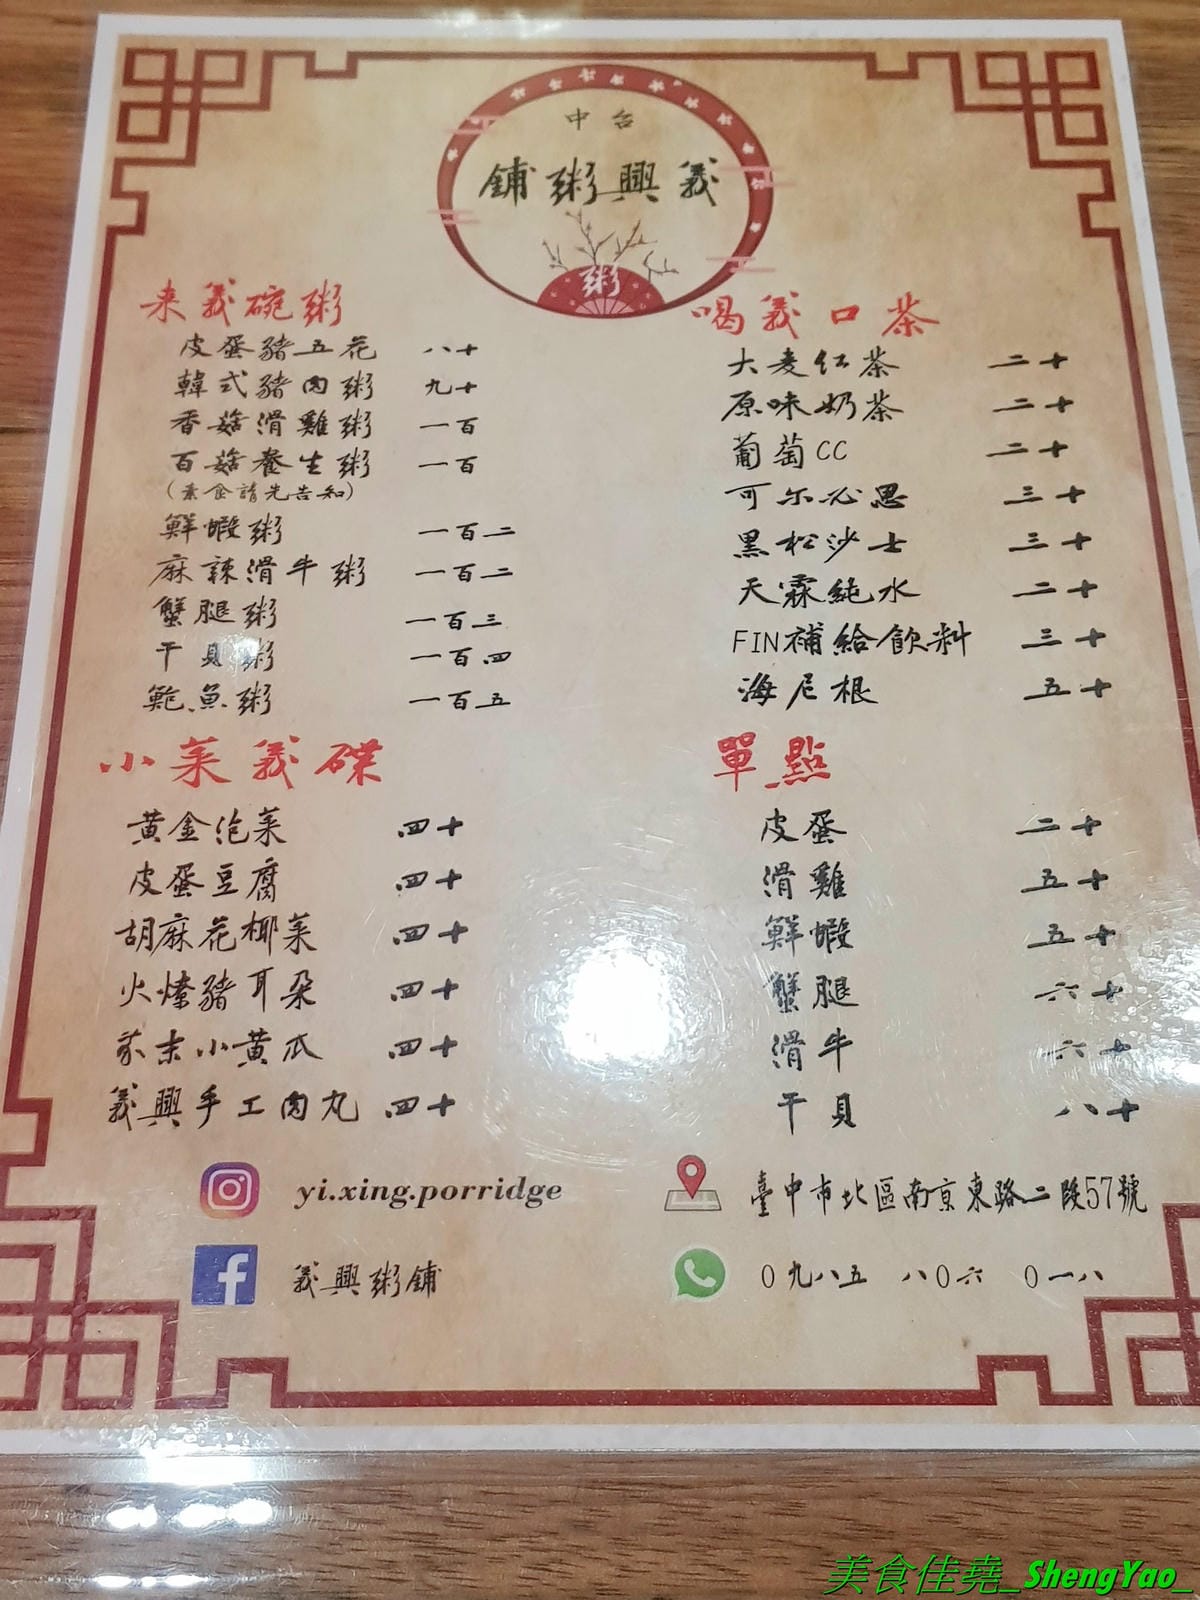 中台
鋪粥興義
粥
来義碗粥
皮蛋豬五花 八十
韓式豬肉粥 九十
香菇滑雞粥 一百
百菇養生粥 一百
(素食請先告知)
鮮蝦粥 一百二
麻辣滑牛粥 一百二
蟹腿粥 一百三
干貝粥 一百四
鮑魚粥 一百五
喝義口茶
大麦红茶 二十
原味奶茶 二十
葡萄CC 二十
可尔必思 三十
黑松沙士 三十
天霖純水 二十
FIN補給飲料 三十
海尼根 五十
小菜義碟
黃金泡菜 四十
皮蛋豆腐 四十
胡麻花椰菜 四十
火燎豬耳朶 四十
蒜末小黃瓜 四十
義興手工肉丸 四十
單點
皮蛋 二十
滑雞 五十
鮮蝦 五十
蟹腿 六十
滑牛 六十
干貝 八十
yi.xing.porridge
義興粥鋪
臺中市北區南京東路二段57號
0九八五 八0六 0一八
美食佳堯_ShengYao_